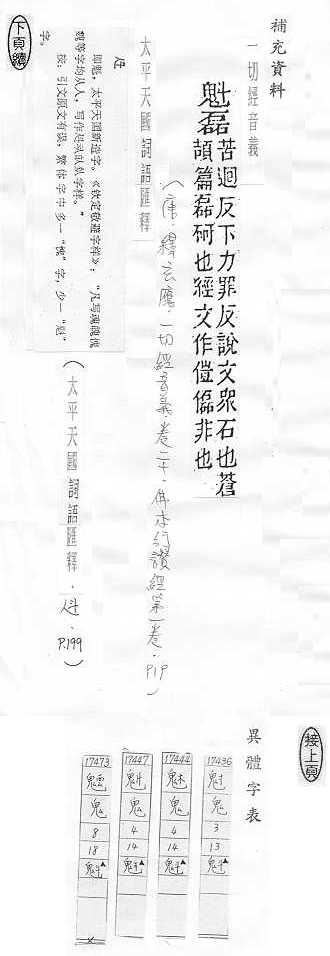 補充資料
一切經音義
魁磊 苦迴反下力罪反說文眾石也蒼
頡篇磊砢也經文作傀儡非也
(唐.釋玄應.一切經音義.卷二十.佛本行讚經第一卷.P19)
太平天國詞語匯釋
即魁,太平天囯新造字。《欽定敬避字样》:“凡写魂魄魁
魏等字均从人,
按:引文原文有误,繁体字中多一“愧”字,少一“魁”
字。
(太平天國詞語匯釋.P.199)
下頁續
接上頁
異體字表
17436
鬼
3
13
魁▲
17444
鬼
4
14
魁▲
17447
鬼
4
14
魁▲
17473
鬼
8
18
魁▲